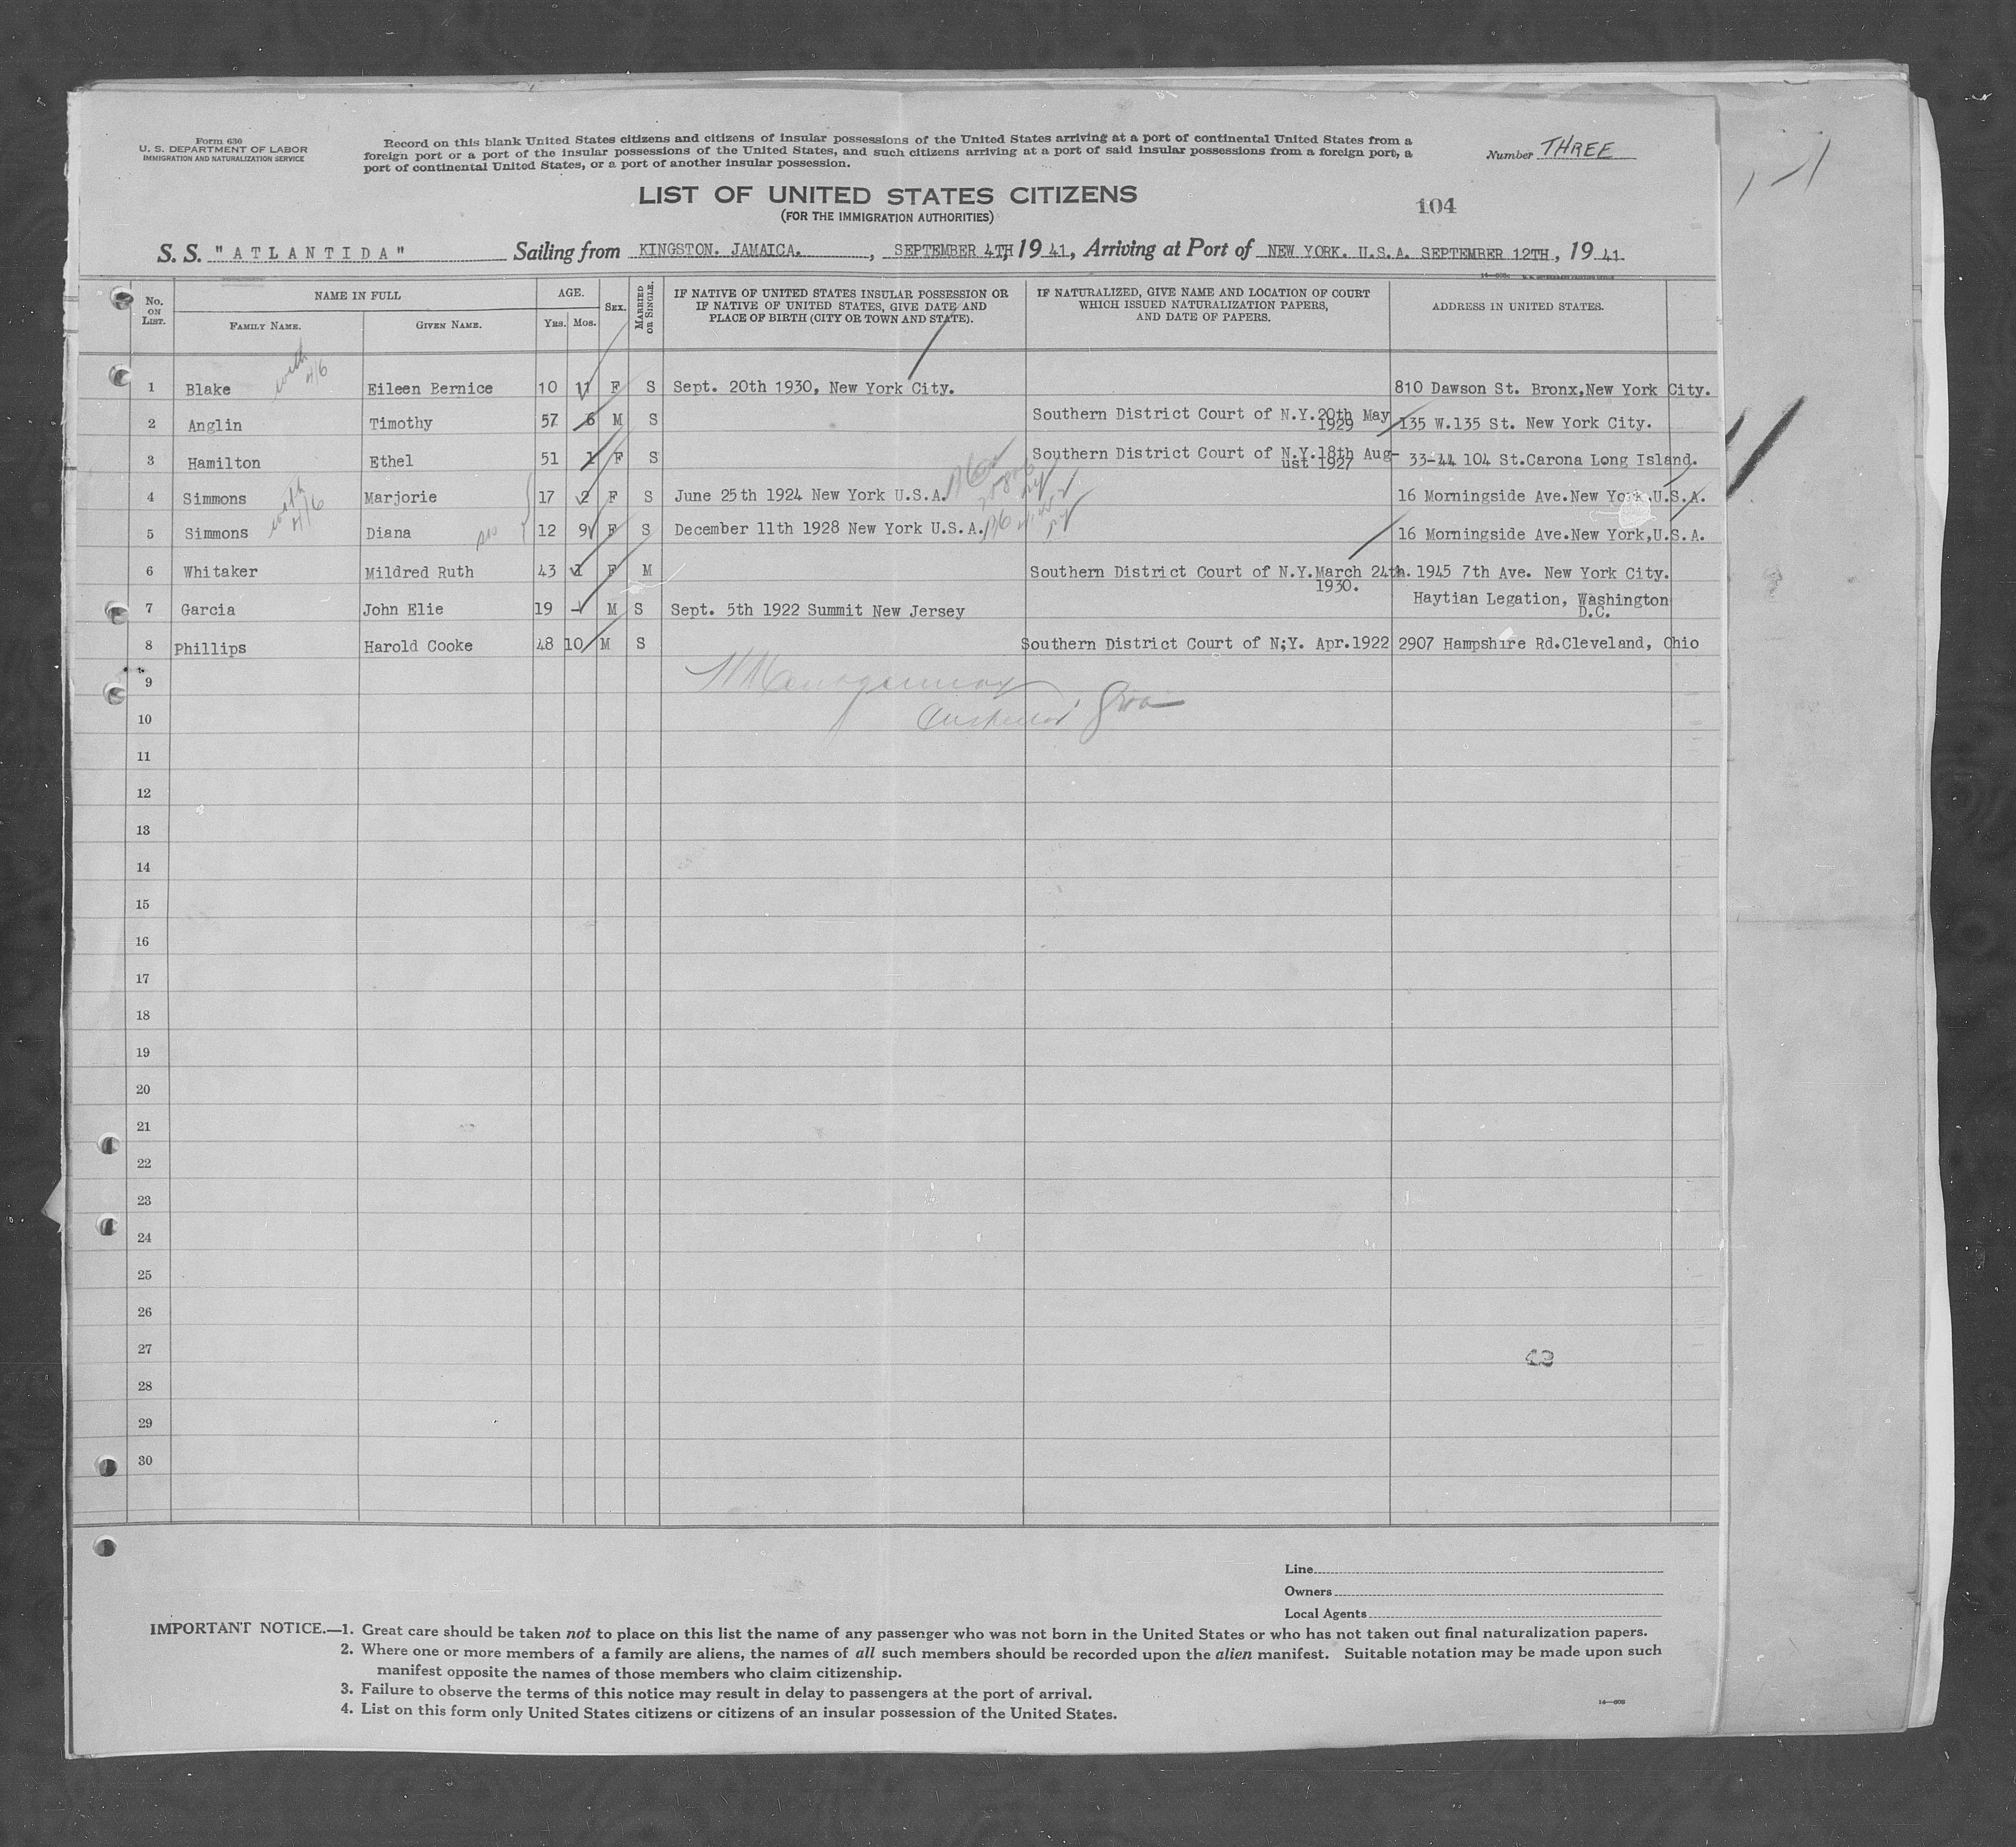 Form 630
U. S. DEPARTMENT OF LABOR
IMMIGRATION AND NATURALIZATION SERVICE
Record on this blank United States citizens and citizens of insular possessions of the United States arriving at a port of continental United States from a
foreign port or a port of the insular possessions of the United States, and such citizens arriving at a port of said insular possessions from a foreign port, a
port of continental United States, or a port of another insular possession.
Number THREE
LIST OF UNITED STATES CITIZENS
(FOR THE IMMIGRATION AUTHORITIES)
104
S. S. "ATLANTIDA" Sailing from KINGSTON. JAMAICA., SEPTEMBER 4TH, 1941, Arriving at Port of NEW YORK. U.S.A. SEPTEMBER 12TH, 1941.
No. ON LIST. NAME IN FULL FAMILY NAME. GIVEN NAME. AGE. YRS. MOS. SEX. MARRIED OR SINGLE. IF NATIVE OF UNITED STATES INSULAR POSSESSION OR IF NATIVE OF UNITED STATES, GIVE DATE AND PLACE OF BIRTH (CITY OR TOWN AND STATE). IF NATURALIZED, GIVE NAME AND LOCATION OF COURT WHICH ISSUED NATURALIZATION PAPERS, AND DATE OF PAPERS. ADDRESS IN UNITED STATES.
1 Blake with Eileen Bernice 10 11 F S Sept. 20th 1930, New York City. 810 Dawson St. Bronx,New York City.
2 Anglin Timothy 57 6 M S Southern District Court of N.Y.20th May 1929 135 W.135 St. New York City.
3 Hamilton Ethel 51 1 F S Southern District Court of N.Y.18th August 1927 33-44 104 St.Carona Long Island.
4 Simmons with Marjorie 17 2 F S June 25th 1924 New York U.S.A. 16 Morningside Ave.New York,U.S.A.
5 Simmons Diana 12 9 F S December 11th 1928 New York U.S.A. 16 Morningside Ave.New York,U.S.A.
6 Whitaker Mildred Ruth 43 1 F M Southern District Court of N.Y.March 24th. 1930. 1945 7th Ave. New York City.
7 Garcia John Elie 19 - M S Sept. 5th 1922 Summit New Jersey Haytian Legation, Washington D.C.
8 Phillips Harold Cooke 48 10 M S Southern District Court of N;Y. Apr.1922 2907 Hampshire Rd.Cleveland, Ohio
9
10
11
12
13
14
15
16
17
18
19
20
21
22
23
24
25
26
27
28
29
30
Line
Owners
Local Agents
IMPORTANT NOTICE.—1. Great care should be taken not to place on this list the name of any passenger who was not born in the United States or who has not taken out final naturalization papers.
2. Where one or more members of a family are aliens, the names of all such members should be recorded upon the alien manifest. Suitable notation may be made upon such
manifest opposite the names of those members who claim citizenship.
3. Failure to observe the terms of this notice may result in delay to passengers at the port of arrival.
4. List on this form only United States citizens or citizens of an insular possession of the United States.